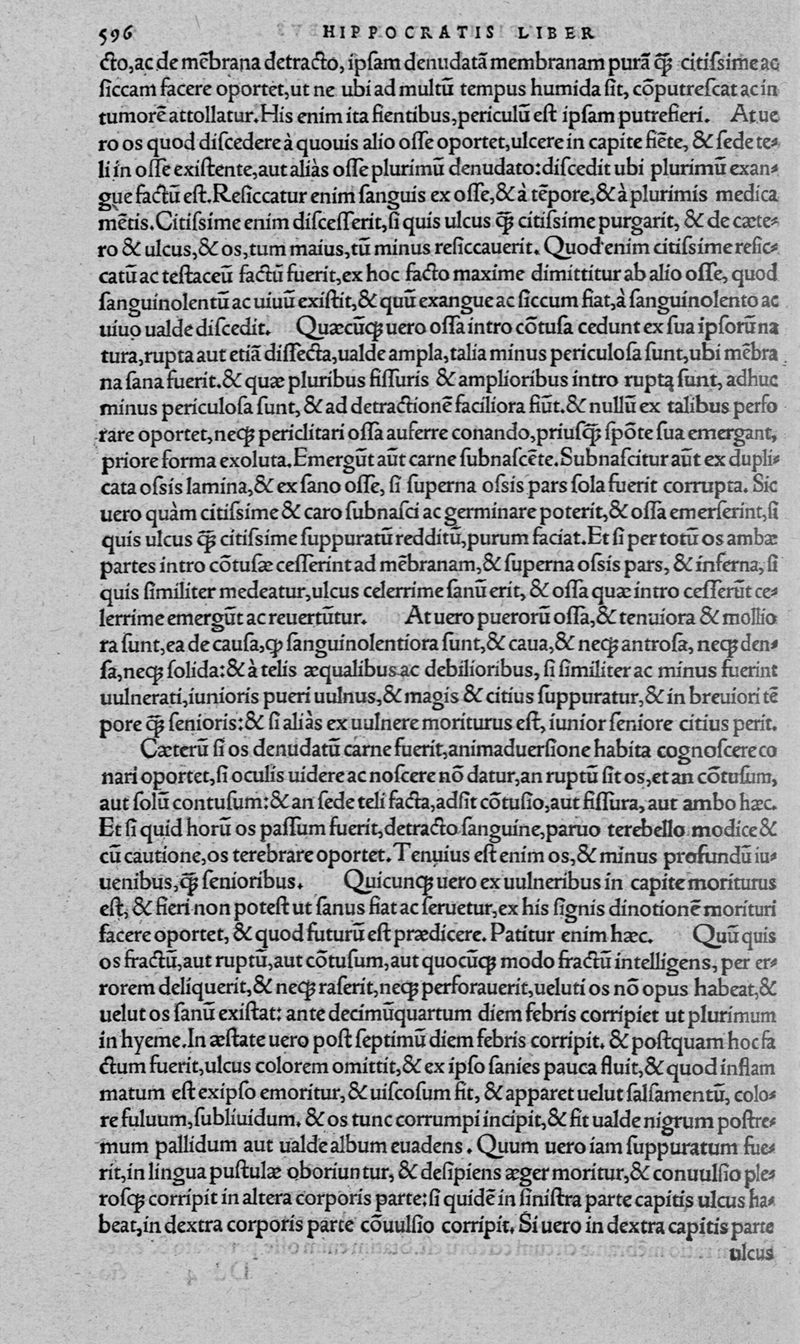 596 HIPPOCRATIS LIBER
cto,ac de mẽbrana detracto, ipſam denudatã membranam purã q̃ꝫ citiſsime ac
ſiccam facere oportet,ut ne ubi ad multũ tempus humida ſit, cõputreſcat ac in
tumorẽ attollatur.His enim ita fientibus,periculũ eſt ipſam putrefieri. At ue
ro os quod diſcedere à quouis alio oſſe oportet,ulcere in capite fiẽte, & ſede te⸗
li in oſſe exiſtente,aut aliàs oſſe plurimũ denudato:diſcedit ubi plurimũ exan⸗
gue factũ eſt.Reſiccatur enim ſanguis ex oſſe,& à tẽpore,& à plurimis medica
mẽtis.Citiſsime enim diſceſſerit,ſi quis ulcus q̃ꝫ citiſsime purgarit, & de cæte⸗
ro & ulcus,& os,tum maius,tũ minus reſiccauerit. Quod enim citiſsime reſic⸗
catũ ac teſtaceũ factũ fuerit,ex hoc facto maxime dimittitur ab alio oſſe, quod
ſanguinolentũ ac uiuũ exiſtit,& quũ exangue ac ſiccum fiat,à ſanguinolento ac
uiuo ualde diſcedit. Quæcũqꝫ uero oſſa intro cõtuſa cedunt ex ſua ipſorũ na
tura,rupta aut etiã diſſecta,ualde ampla,talia minus periculoſa ſunt,ubi mẽbra
na ſana fuerit.& quæ pluribus fiſſuris & amplioribus intro ruptę ſunt, adhuc
minus periculoſa ſunt, & ad detractionẽ faciliora fiũt.& nullũ ex talibus perfo
rare oportet,neqꝫ periclitari oſſa auferre conando,priuſq̃ꝫ ſpõte ſua emergant,
priore forma exoluta.Emergũt aũt carne ſubnaſcẽte.Subnaſcitur aũt ex dupli⸗
cata oſsis lamina,& ex ſano oſſe, ſi ſuperna oſsis pars ſola fuerit corrupta. Sic
uero quàm citiſsime & caro ſubnaſci ac germinare poterit,& oſſa emerſerint,ſi
quis ulcus q̃ꝫ citiſsime ſuppuratũ redditũ,purum faciat.Et ſi per totũ os ambæ
partes intro cõtuſæ ceſſerint ad mẽbranam,& ſuperna oſsis pars, & inferna, ſi
quis ſimiliter medeatur,ulcus celerrime ſanũ erit, & oſſa quæ intro ceſſerũt ce⸗
lerrime emergũt ac reuertũtur. At uero puerorũ oſſa,& tenuiora & mollio
ra ſunt,ea de cauſa,ꝙ ſanguinolentiora ſunt,& caua,& neqꝫ antroſa, neqꝫ den⸗
ſa,neqꝫ ſolida:& à telis æqualibus ac debilioribus, ſi ſimiliter ac minus fuerint
uulnerati,iunioris pueri uulnus,& magis & citius ſuppuratur,& in breuiori tẽ
pore q̃ꝫ ſenioris:& ſi aliàs ex uulnere moriturus eſt, iunior ſeniore citius perit.
Cæterũ ſi os denudatũ carne fuerit,animaduerſione habita cognoſcere co
nari oportet,ſi oculis uidere ac noſcere nõ datur,an ruptũ ſit os,et an cõtuſum,
aut ſolũ contuſum:& an ſede teli facta,adſit cõtuſio,aut fiſſura, aut ambo hæc.
Et ſi quid horũ os paſſum fuerit,detracto ſanguine,paruo terebello modice &
cũ cautione,os terebrare oportet.Tenuius eſt enim os,& minus profundũ iu⸗
uenibus,q̃ꝫ ſenioribus. Quicunqꝫ uero ex uulneribus in capite moriturus
eſt, & fieri non poteſt ut ſanus fiat ac ſeruetur,ex his ſignis dinotionẽ morituri
facere oportet, & quod futurũ eſt prædicere. Patitur enim hæc. Quũ quis
os fractũ,aut ruptũ,aut cõtuſum,aut quocũqꝫ modo fractũ intelligens, per er⸗
rorem deliquerit,& neqꝫ raſerit,neqꝫ perforauerit,ueluti os nõ opus habeat,&
uelut os ſanũ exiſtat: ante decimũquartum diem febris corripiet ut plurimum
in hyeme.In æſtate uero poſt ſeptimũ diem febris corripit. & poſtquam hoc fa
ctum fuerit,ulcus colorem omittit,& ex ipſo ſanies pauca fluit,& quod inflam
matum eſt ex ipſo emoritur, & uiſcoſum fit, & apparet uelut ſalſamentũ, colo⸗
re fuluum,ſubliuidum. & os tunc corrumpi incipit,& fit ualde nigrum poſtre⸗
mum pallidum aut ualde album euadens. Quum uero iam ſuppuratum fue⸗
rit,in lingua puſtulæ oboriuntur, & deſipiens æger moritur,& conuulſio ple⸗
roſqꝫ corripit in altera corporis parte:ſi quidẽ in ſiniſtra parte capitis ulcus ha⸗
beat,in dextra corporis parte cõuulſio corripit. Si uero in dextra capitis parte
ulcus